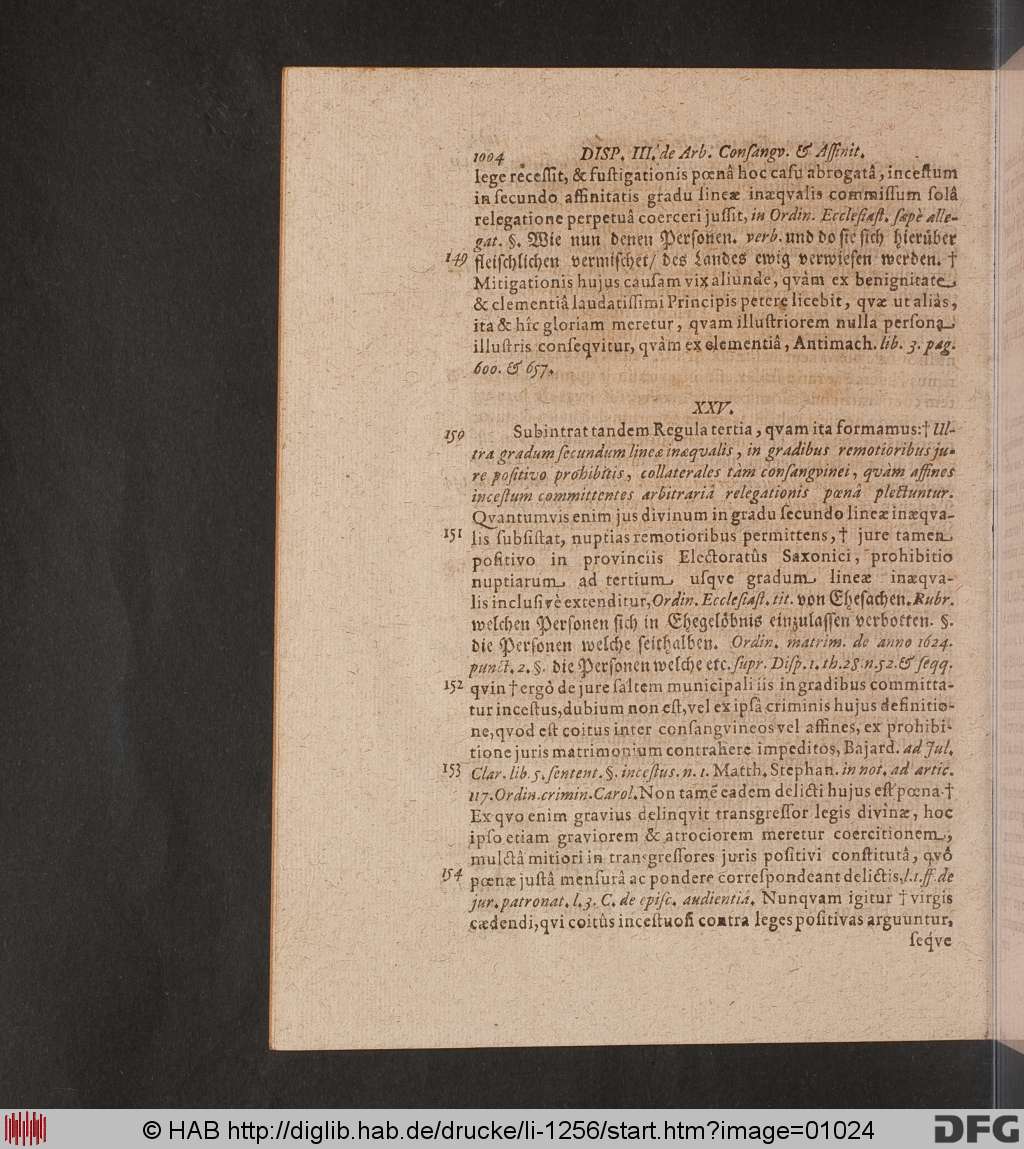 1004 DISP. III. de Arb. Consangv. & Affinit.
lege recessit, & fustigationis pœnâ hoc casu abrogatâ, incestum
in secundo affinitatis gradu lineæ inæqvalis commissum solâ
relegatione perpetuâ coerceri jussit, in Ordin. Ecclesiast. sæpè alle-
gat. §. Wie nun denen Personen. verb. und do sie sich hierüber
149 fleischlichen vermischet/ des Landes ewig verwiesen werden. †
Mitigationis hujus causam vix aliunde, qvàm ex benignitate
& clementiâ laudatissimi Principis petere licebit, qvæ ut aliàs,
ita & hîc gloriam meretur, qvam illustriorem nulla persona
illustris conseqvitur, qvàm ex clementiâ, Antimach. lib. 3. pag.
600. & 657.
XXV.
150 Subintrat tandem Regula tertia, qvam ita formamus: † Ul-
tra gradum secundum lineæ inæqvalis, in gradibus remotioribus ju-
re positivo prohibitis, collaterales tàm consangvinei, qvàm affines
incestum committentes arbitrariâ relegationis pœnâ plectuntur.
Qvantumvis enim jus divinum in gradu secundo lineæ inæqva-
151 lis subsistat, nuptias remotioribus permittens, † jure tamen
positivo in provinciis Electoratûs Saxonici, prohibitio
nuptiarum ad tertium usqve gradum lineæ inæqva-
lis inclusivè extenditur, Ordin. Ecclesiast. tit. von Ehesachen. Rubr.
welchen Personen sich in Ehegelöbnis einzulassen verbotten. §.
die Personen welche seithalben. Ordin. matrim. de anno 1624.
punct. 2. §. die Personen welche etc. supr. Disp. 1. th. 28. n. 52. & seqq.
152 qvin † ergò de jure saltem municipali iis in gradibus committa-
tur incestus, dubium non est, vel ex ipsâ criminis hujus definitio-
ne, qvod est coitus inter consangvineos vel affines, ex prohibi-
tione juris matrimonium contrahere impeditos, Bajard. ad Jul.
153 Clar. lib. 5. sentent. §. incestus. n. 1. Matth. Stephan. in not. ad artic.
117. Ordin. crimin. Carol. Non tamē eadem delicti hujus est pœna. †
Ex qvo enim gravius delinqvit transgressor legis divinæ, hoc
ipso etiam graviorem & atrociorem meretur coercitionem,
mulctâ mitiori in transgressores juris positivi constitutâ, qvô
154 pœnæ justâ mensurâ ac pondere correspondeant delictis, l. 1. ff. de
jur. patronat. l. 3. C. de episc. audientiâ. Nunqvam igitur † virgis
cædendi, qvi coitûs incestuosi contra leges positivas arguuntur,
seqve
© HAB http://diglib.hab.de/drucke/li-1256/start.htm?image=01024
DFG